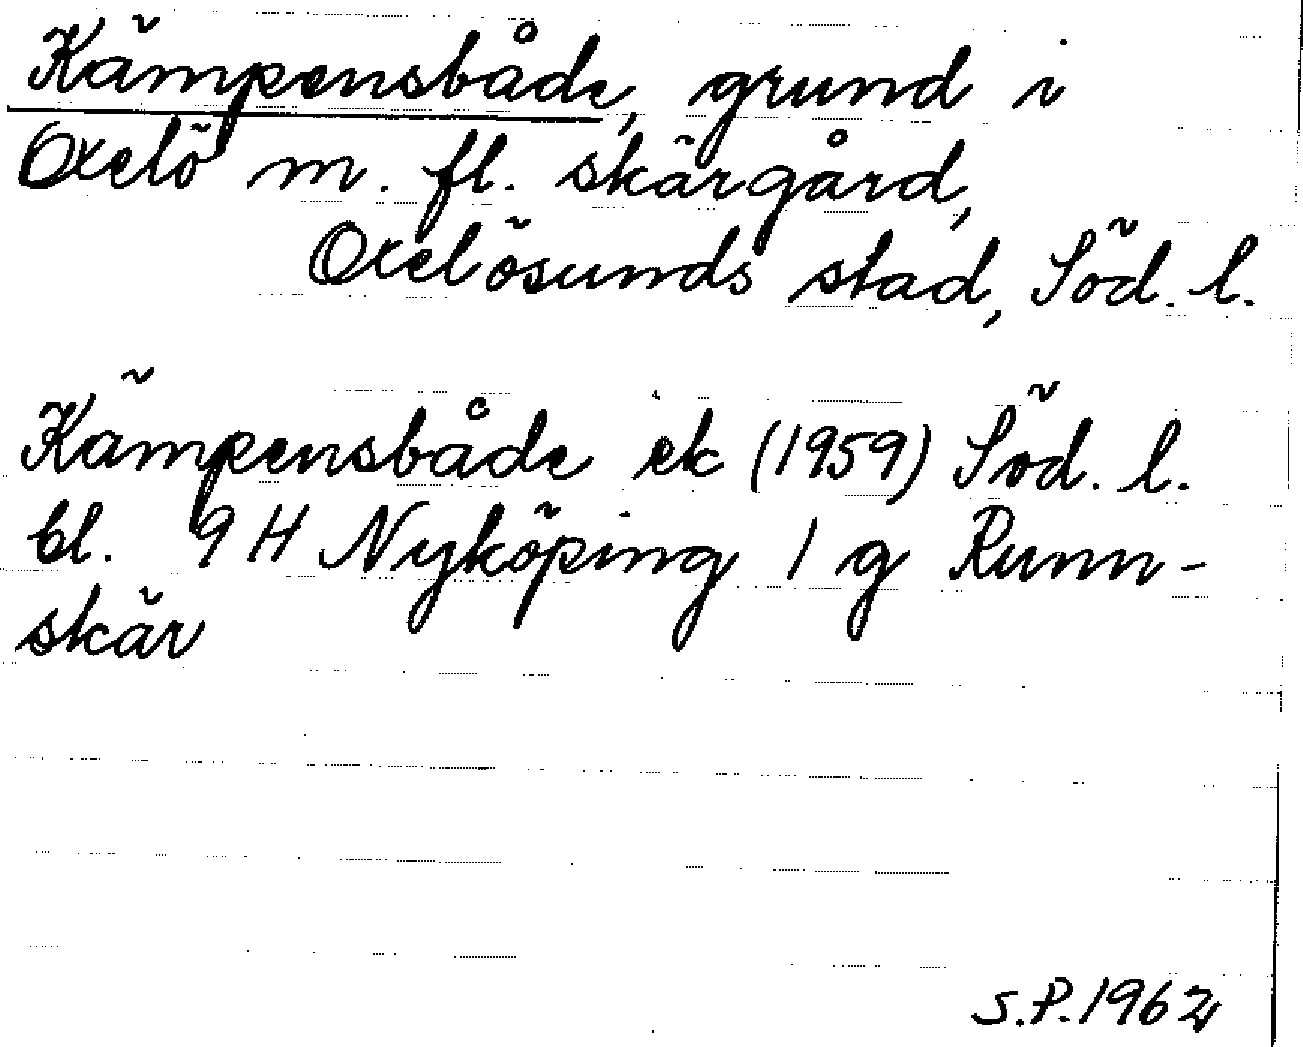 Kämpensbåde, grund i
Oxelö m. fl. skärgård,
Oxelösunds stad, Söd. l.
Kämpensbåde ek (1959) Söd. l.
bl. 9 H Nyköping 1 g Runn-
skär
S.P. 1962